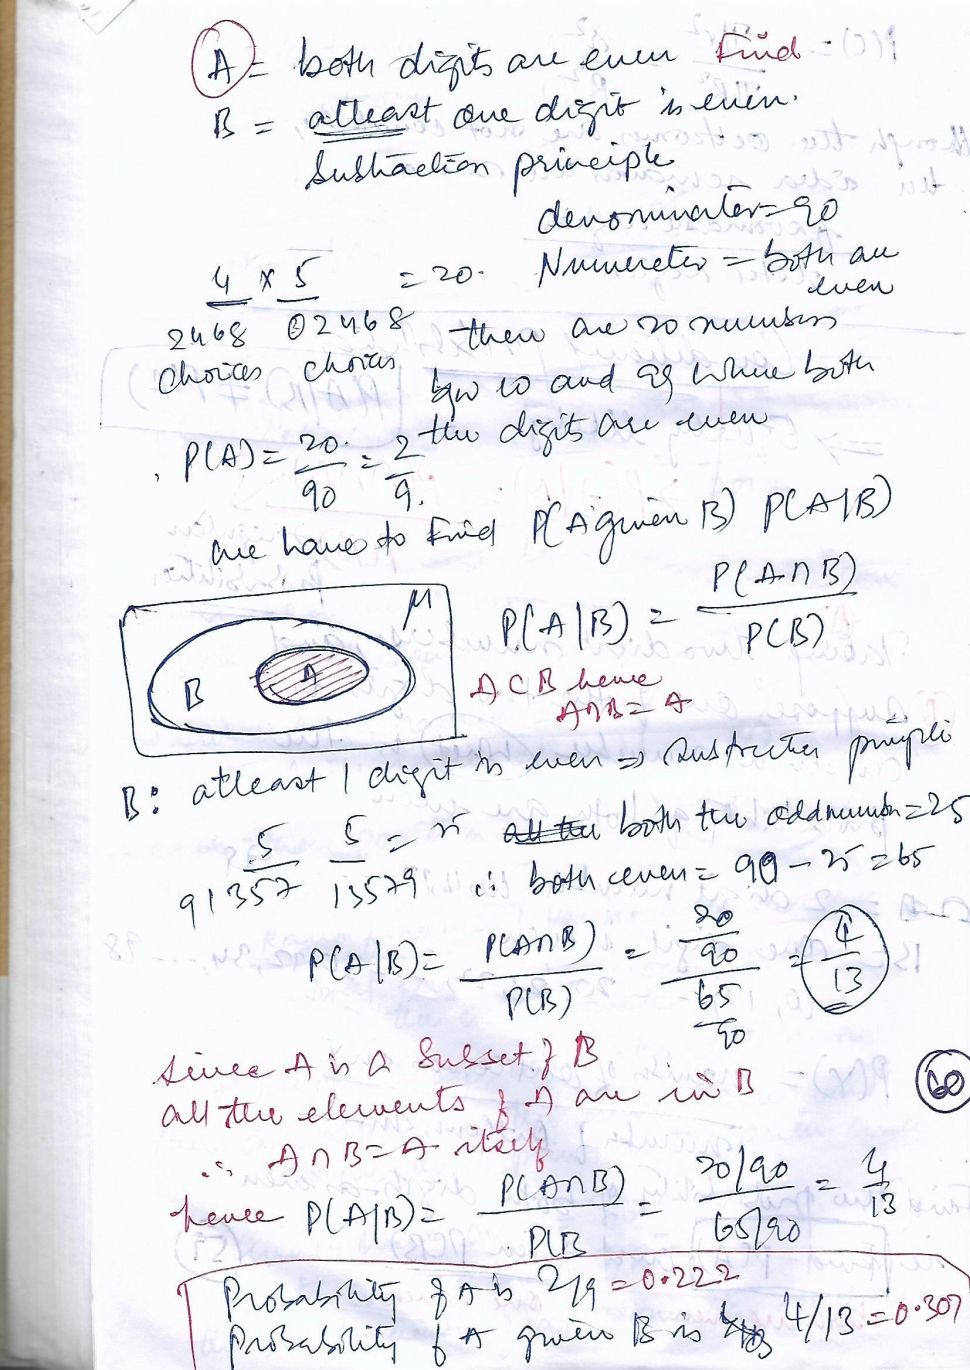 A = both digits are even Find
B = atleast one digit is even.
Subtraction principle
denominator = 90
4 × 5 = 20. Numerator = both are even
2468 02468 there are 20 numbers
choices choices b/w 10 and 99 where both
the digits are even
P(A) = 20/90 = 2/9.
we have to Find P(A given B) P(A|B)
μ
B A
P(A|B) = P(A∩B)/P(B)
A ⊂ B hence
A∩B = A
B: atleast 1 digit is even ⇒ Subtraction principle
5 5 = 25 both the odd number = 25
91357 13579 ∴ both even = 90 - 25 = 65
P(A|B) = P(A∩B)/P(B) = (20/90)/(65/90) = 4/13
Since A is a Subset of B
all the elements of A are in B
60
∴ A∩B = A itself
hence P(A|B) = P(A∩B)/P(B = (20/90)/(65/90) = 4/13
Probability of A is 2/9 = 0.222
Probability of A given B is 4/13 = 0.307